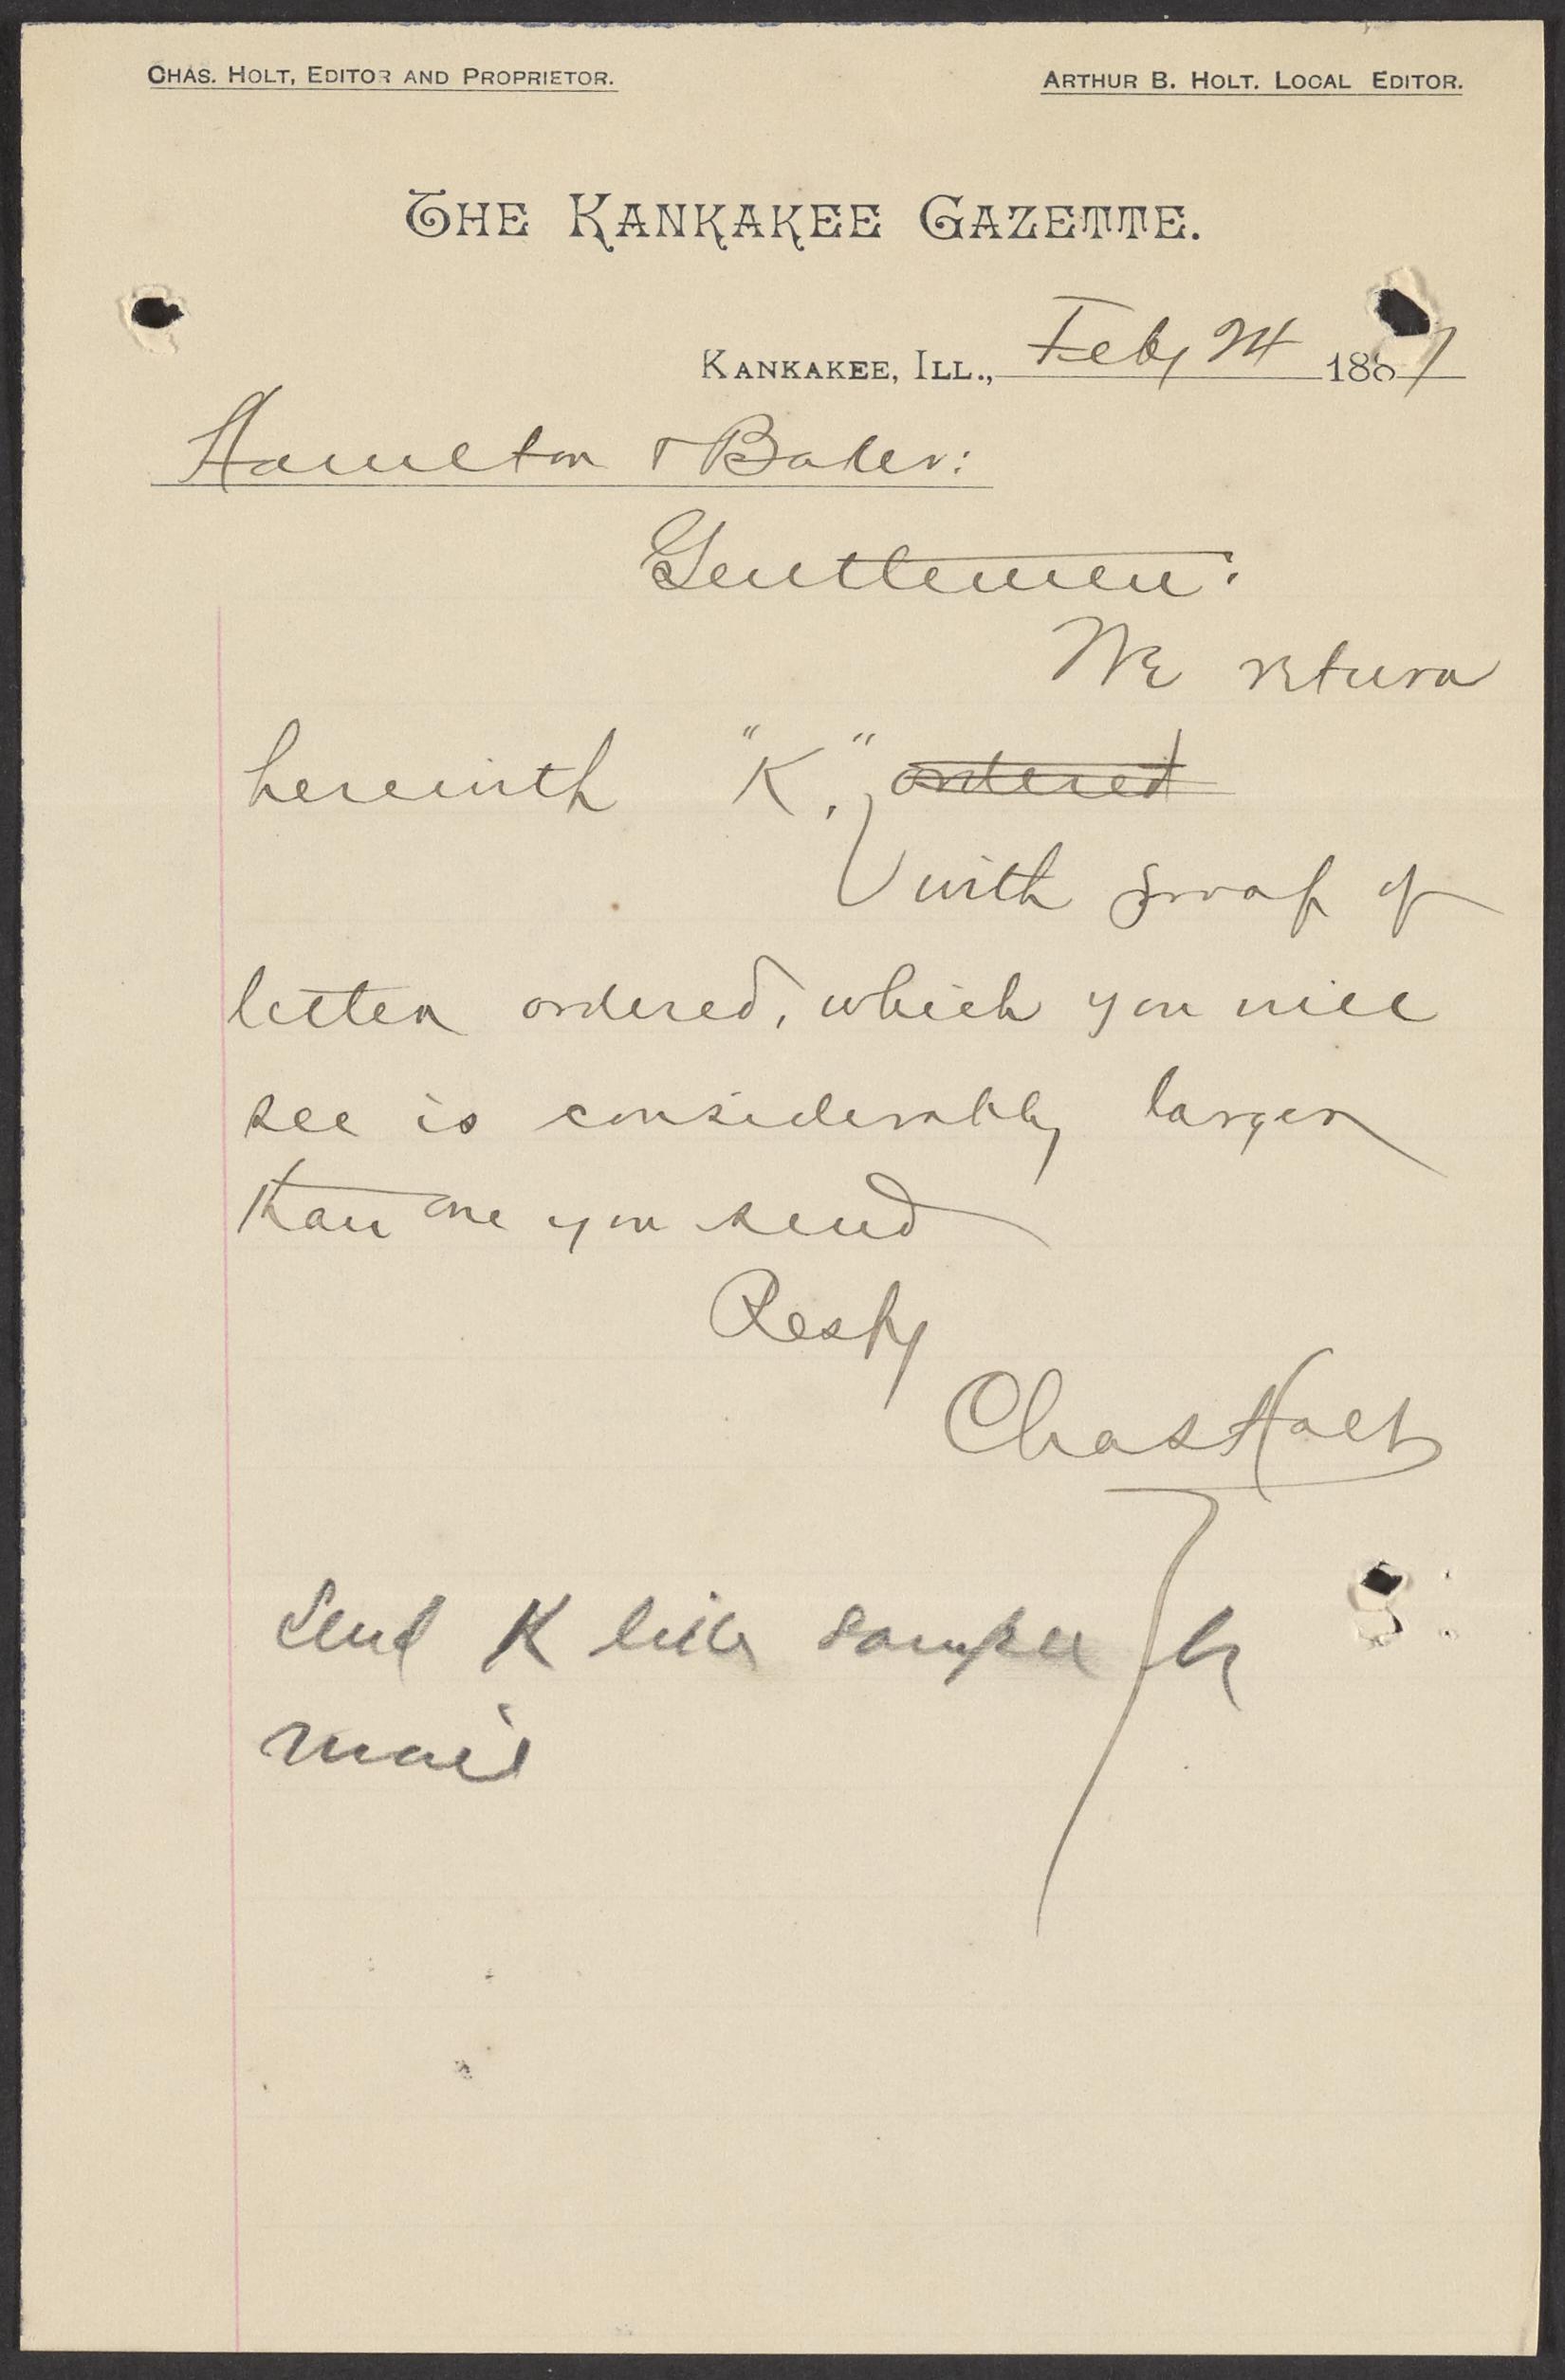 CHAS. HOLT, EDITOR AND PROPRIETOR.
ARTHUR B. HOLT. LOCAL EDITOR.
THE KANKAKEE GAZETTE.
KANKAKEE, ILL., Feby 24 1887
Hamelton & Baker:
Gentlemen:
We return
herewith "K", ordered
with proof of
letter ordered, which you will
see is considerably larger
than one you send
Respy
Chas Holt
Send K like sample by
mail